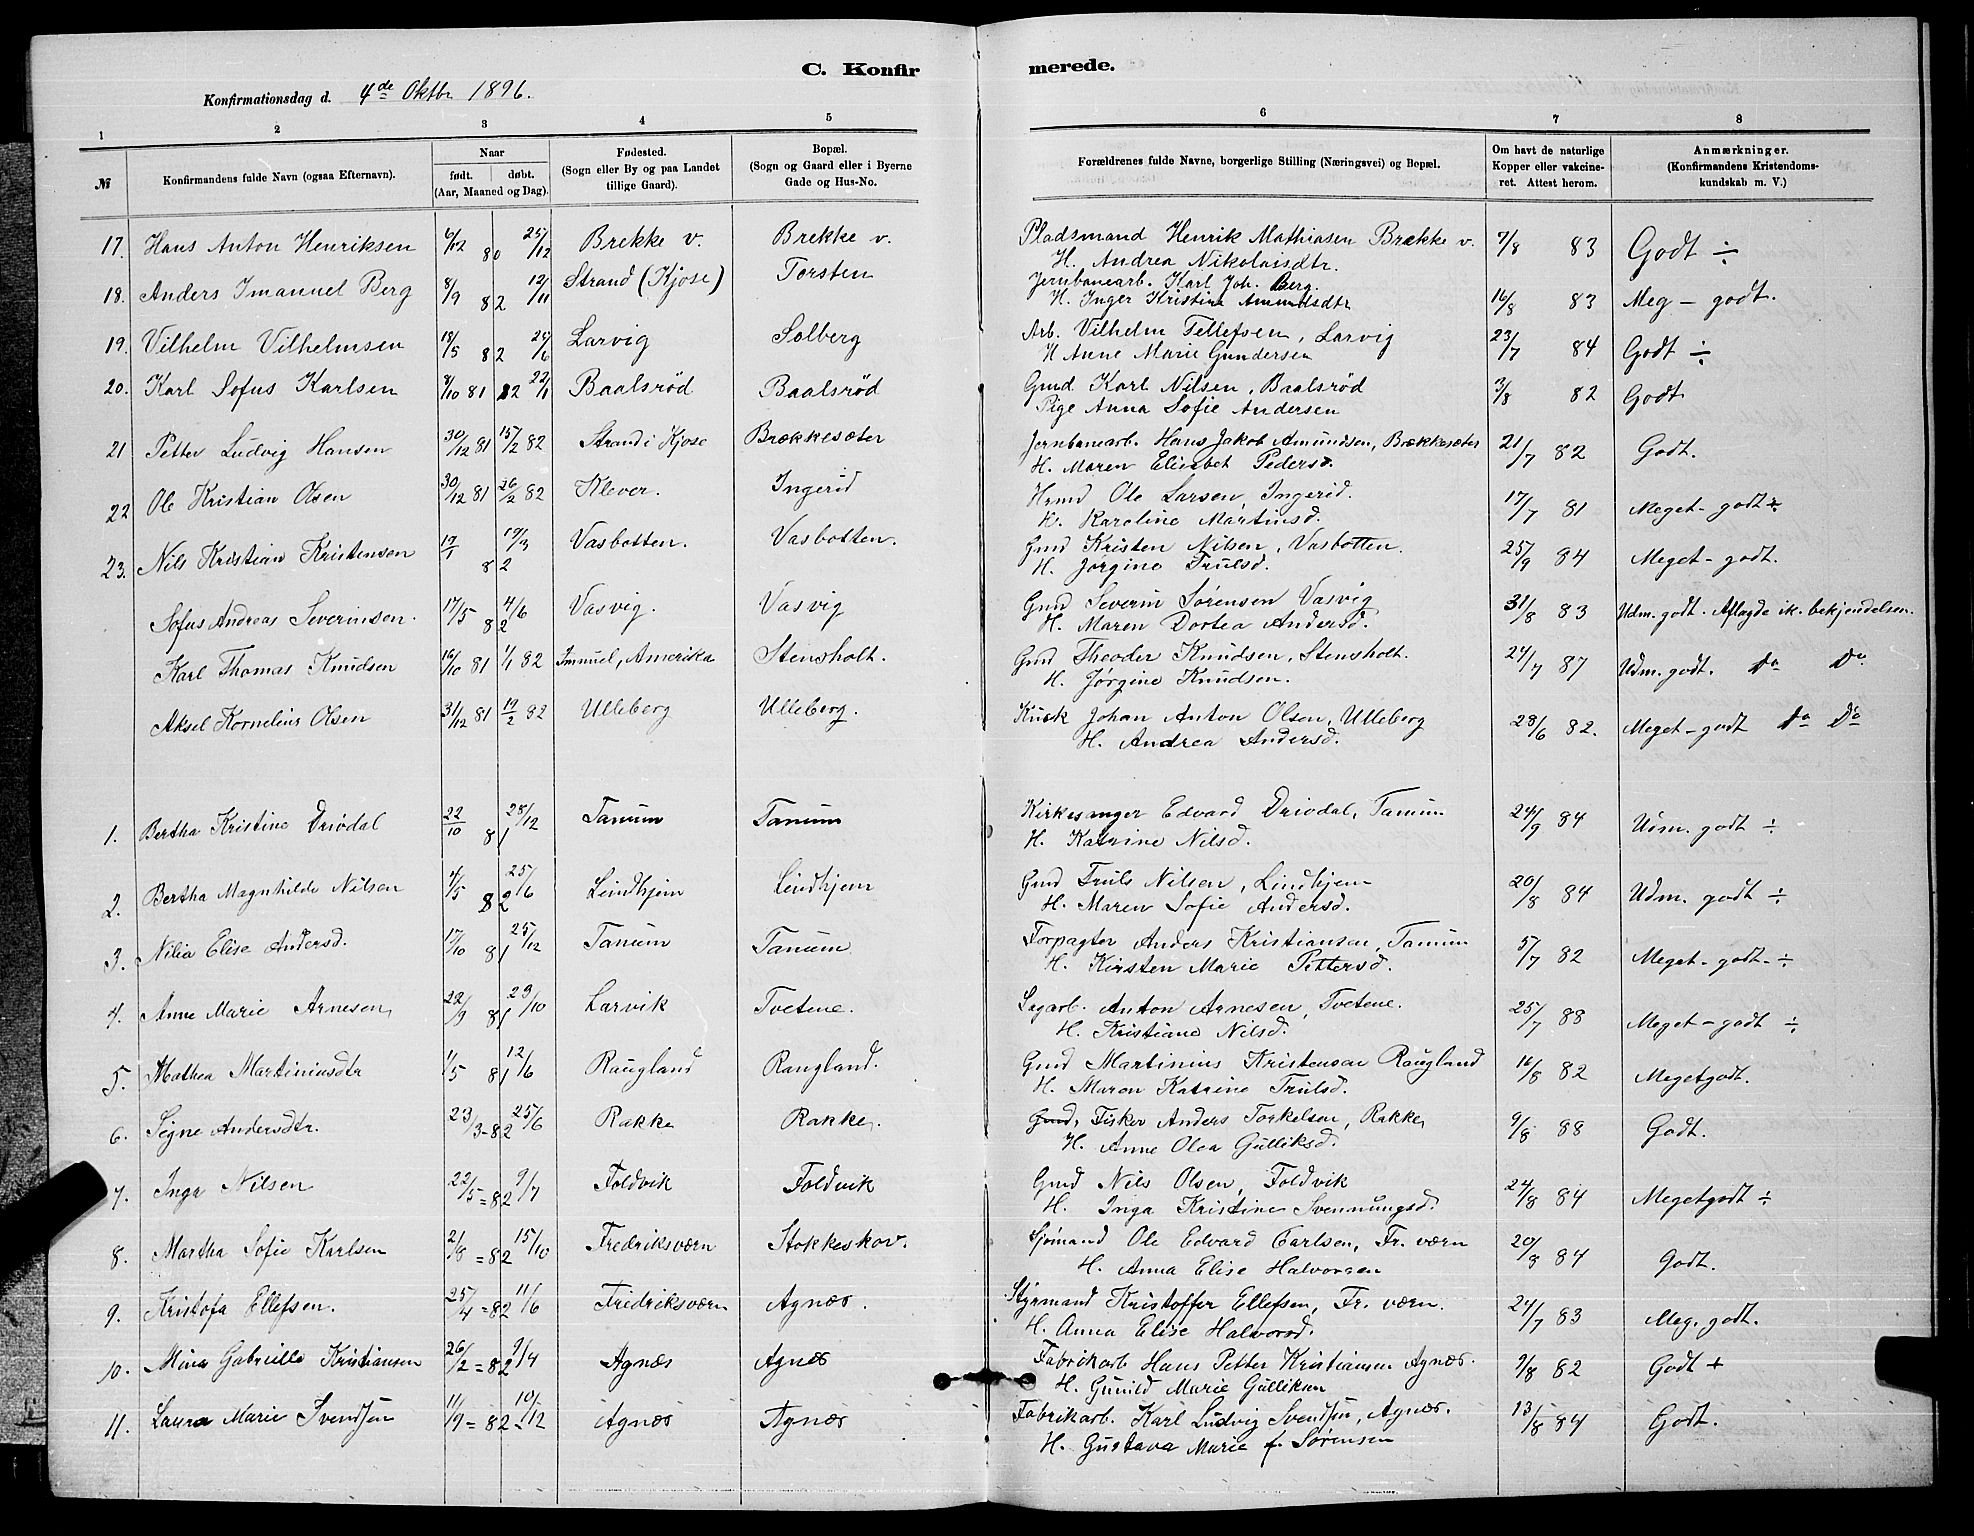 C. Konfirmerede.
Konfirmationsdag d. 4de Oktbr 1896.
1 2 3 4 5 6 7 8
№ Konfirmandens fulde Navn (ogsaa Efternavn). Naar født. døbt. (Aar, Maaned og Dag). Fødested. (Sogn eller By og paa Landet tillige Gaard). Bopæl. (Sogn og Gaard eller i Byerne Gade og Hus-No. Forældrenes fulde Navne, borgerlige Stilling (Næringsvei) og Bopæl. Om havt de naturlige Kopper eller vakcineret. Attest herom. Anmærkninger. (Konfirmandens Kristendomskundskab m. V.)
17. Hans Anton Henriksen 6/12 80 25/12 Brekke v. Brekke v. Pladsmand Henrik Mathiasen Brække v. 7/8 83 Godt ÷
H. Andrea Nikolaisdtr.
18. Anders Imanuel Berg 8/9 82 12/11 Strand (Kjose) Torsten Jernbanearb. Karl Joh. Berg. 16/8 83 Meg - godt.
H. Inger Kristine Amundsdtr
19. Vilhelm Vilhelmsen 18/5 82 29/6 Larvig Solberg Arb. Vilhelm Tellefsen, Larvig 23/7 84 Godt ÷
H Anne Marie Gundersen
20. Karl Sofus Karlsen 8/10 81 22/1 82 Baalsrød Baalsrød Gmd Karl Nilsen, Baalsrød 3/8 82 Godt
Pige Anna Sofie Andersen
21 Petter Ludvig Hansen 30/12 81 15/2 82 Strand i Kjose Brækkesæter Jernbanearb. Hans Jakob Amundsen, Brækkesæter 21/7 82 Godt.
H. Maren Elisabet Pedersd.
22 Ole Kristian Olsen 30/12 81 26/2 82 Klever. Ingerid Hrmd Ole Larsen Ingerid. 17/7 81 Meget - godt ÷
H. Karoline Martinsd.
23. Nils Kristian Kristensen 19/1 82 19/3 Vasbotten. Vasbotten. Gmd Kristen Nilsen, Vasbotten. 25/9 84 Meget - godt.
H. Jørgine Trulsd.
Sofus Andreas Severinsen. 17/5 82 4/6 Vasvig. Vasvig Gmd Severin Sørensen Vasvig 31/8 83 Udm. godt. Aflagde ik. bekjendelsen.
H. Maren Dortea Andersd.
Karl Thomas Knudsen 16/10 81 1/1 82 Imuel, Amerika Stensholt. Gmd Theodor Knudsen, Stensholt. 24/7 87 Udm. godt. Do Do
H. Jørgine Knudsen.
Aksel Kornelius Olsen 31/12 81 19/2 82 Ulleberg Ulleberg. Kusk Johan Anton Olsen, Ulleberg 28/6 82. Meget - godt Do Do
H. Andrea Andersd.
1. Bertha Kristine Driødal 22/10 81 28/12 Tanum Tanum Kirkesanger Edvard Driødal, Tanum 24/9 84 Udm. godt ÷
H. Katrine Nilsd.
2. Bertha Magnhilde Nilsen 4/5 82 25/6 Lindhjem Lindhjem Gmd Truls Nilsen, Lindhjem 20/8 84 Udm. godt ÷
H. Maren Sofie Andersd.
3. Nilia Elise Andersd. 17/10 81 25/12 Tanum Tanum Forpagter Anders Kristiansen, Tanum 5/7 82 Meget - godt - ÷
H. Kirsten Marie Pettersd.
4. Anne Marie Arnesen, 22/9 81 23/10 Larvik Tvetene. Sagarb. Anton Arnesen, Tvetene. 25/7 88 Meget - godt ÷
H. Kristiane Nilsd.
5. Mathea Martiniusdtr 1/5 81 12/6 Raugland Raugland. Gmd Martinius Kristensen Raugland 16/8 82 Megetgodt.
H. Maren Katrine Trulsd.
6. Signe Andersdtr. 23/3 - 82 25/6 Rakke Rakke. Gmd, Fisker Anders Torkelsen, Rakke 9/8 88 Godt.
H. Anne Olea Gulliksd.
7. Inga Nilsen 22/5 = 82 9/7 Foldvik Foldvik Gmd Nils Olsen, Foldvik 24/8 84 Megetgodt ÷
H. Inga Kristine Svennungsd.
8. Martha Sofie Karlsen 2/8 = 82 15/10 Fredriksværn Stokkeskov. Sjømand Ole Edvard Carlsen, Fr. værn 20/8 84 Godt.
H. Anna Elise Halvorsen
9. Kristofa Ellefsen. 25/4 = 82 11/6 Fredriksværn Agnæs. Styrmand Kristoffer Ellefsen, Fr. værn. 24/7 83 Meg. godt.
H. Anna Elise Halvorsd.
10. Mina Gabrielle Kristiansen 26/2 = 82 9/4 Agnæs Agnæs Fabrikarb Hans Petter Kristiansen Agnæs. 9/8 82 Godt +
H. Gunild Marie Gulliksen
11. Laura Marie Svendsen 11/9 = 82 10/12 Agnæs Agnæs Fabrikarb. Karl Ludvig Svendsen, Agnæs. 13/8 84 Godt.
H. Gustava Marie f. Sørensen